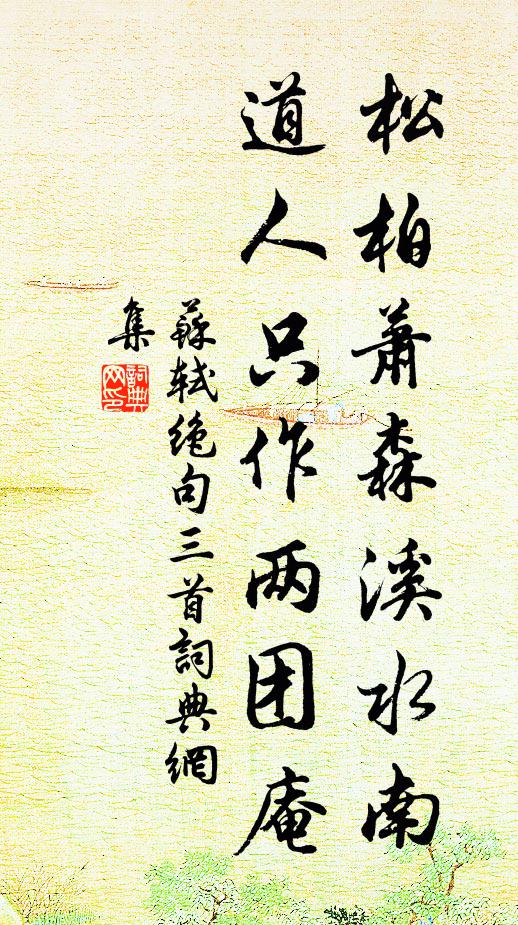 松柏蕭森溪水南
道人只作两团庵
蘇轼絶句三首詞典網
集
詞典
网印